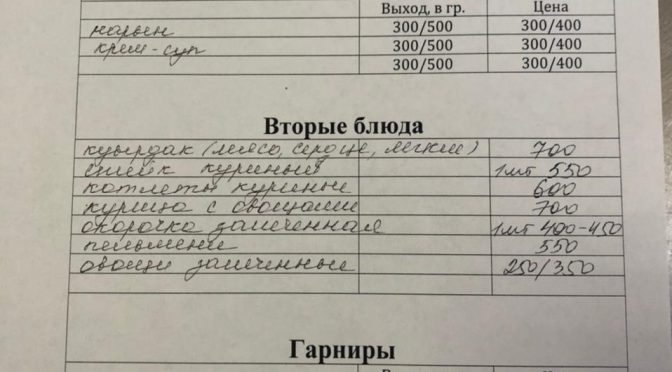 Выход, в гр. Цена
нарын 300/500 300/400
крем-суп 300/500 300/400
300/500 300/400
Вторые блюда
куырдак (мясо, сердце, легкие) 700
стейк куриный 1шт 550
котлеты куриные 600
курица с овощами 700
окорочка запеченная 1шт 400-450
пельмени 550
овощи запеченные 250/350
Гарниры